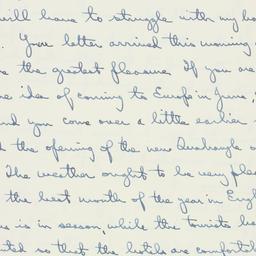 will have to struggle with my
. Your letter arrived this morning
the greatest pleasure. If you are
idea of coming to Europe in June,
and you come over a little earlier
the opening of the new Quadrangle
The weather ought to be very
the best month of the year in
is in season, while the tourists
so that the hotels are